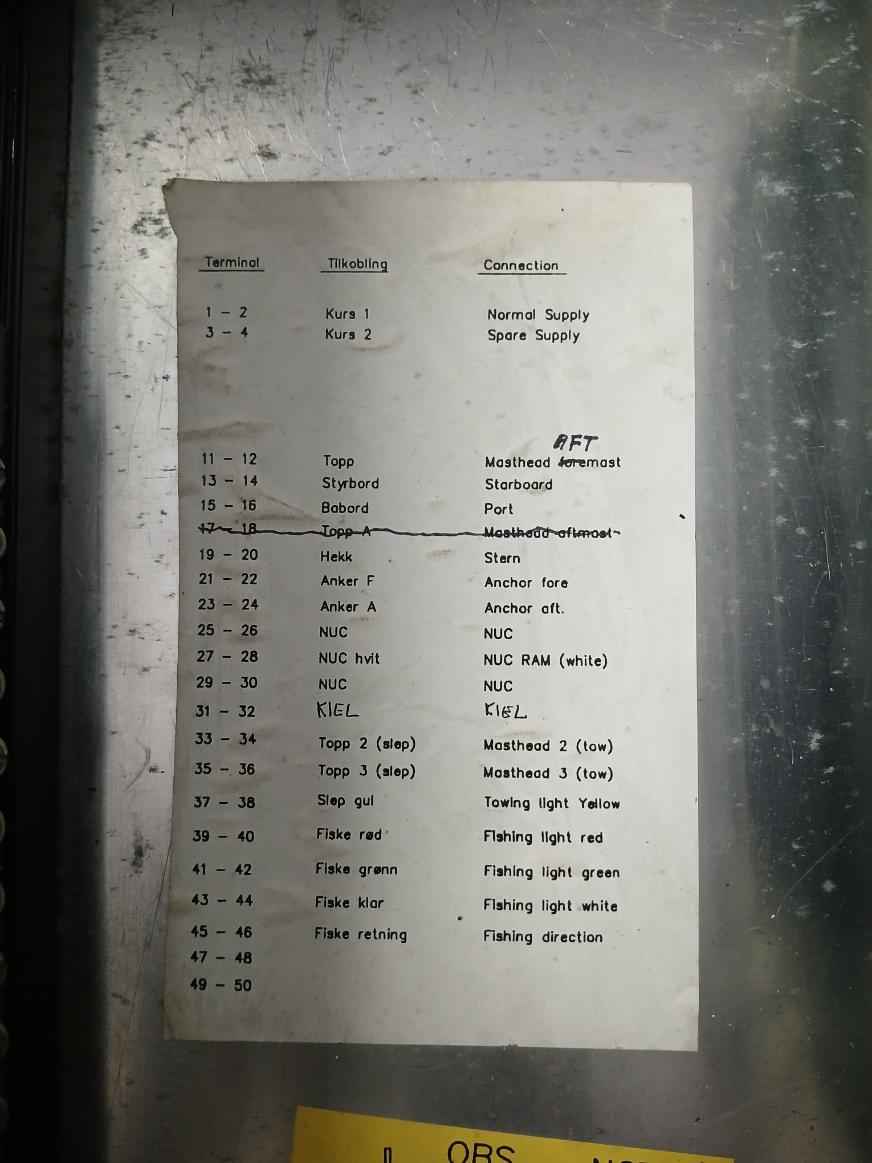 Terminal Tilkobling Connection
1 - 2 Kurs 1 Normal Supply
3 - 4 Kurs 2 Spare Supply
AFT
11 - 12 Topp Masthead foremast
13 - 14 Styrbord Starboard
15 - 16 Babord Port
17 - 18 Topp A Masthead aftmast
19 - 20 Hekk Stern
21 - 22 Anker F Anchor fore
23 - 24 Anker A Anchor aft.
25 - 26 NUC NUC
27 - 28 NUC hvit NUC RAM (white)
29 - 30 NUC NUC
31 - 32 KIEL KIEL
33 - 34 Topp 2 (slep) Masthead 2 (tow)
35 - 36 Topp 3 (slep) Masthead 3 (tow)
37 - 38 Slep gul Towing light Yellow
39 - 40 Fiske rød Fishing light red
41 - 42 Fiske grønn Fishing light green
43 - 44 Fiske klar Fishing light white
45 - 46 Fiske retning Fishing direction
47 - 48
49 - 50
OBS